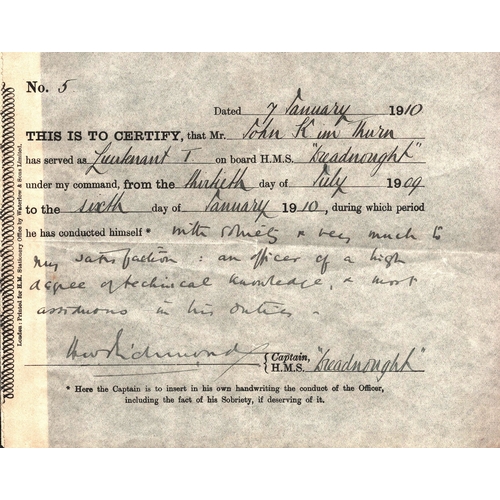 No. 5
Dated 7 January 1910
THIS IS TO CERTIFY, that Mr. John K im Thurn
has served as Lieutenant T. on board H.M.S. "Dreadnought"
under my command, from the thirtieth day of July 1909
to the sixth day of January 1910, during which period
he has conducted himself * with sobriety & very much to
my satisfaction: an officer of a high
degree of technical knowledge, & most
assiduous in his duties.
HW Richmond { Captain,
H.M.S. "Dreadnought"
* Here the Captain is to insert in his own handwriting the conduct of the Officer,
including the fact of his Sobriety, if deserving of it.
London: Printed for H.M. Stationery Office by Waterlow & Sons Limited.